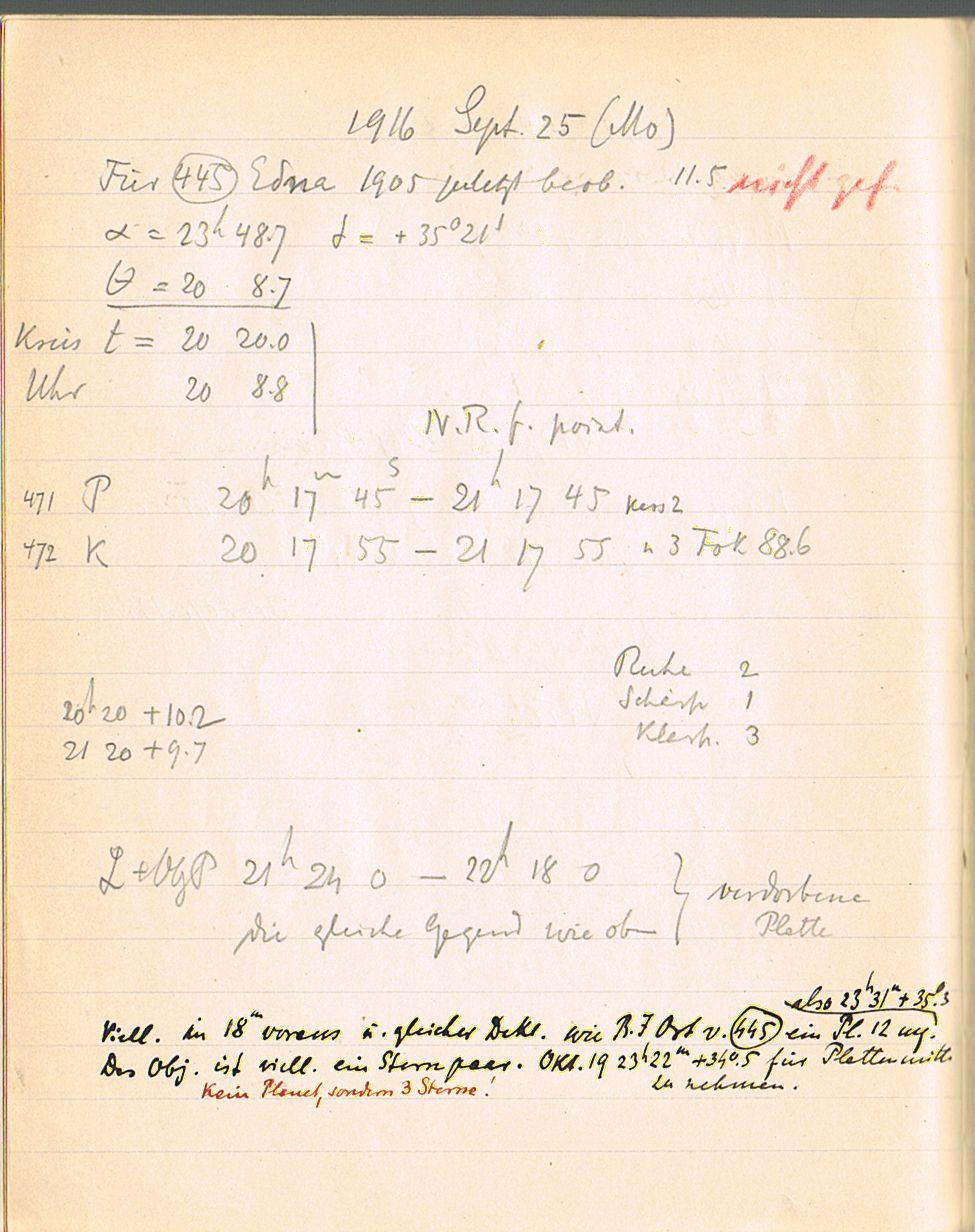 1916 Sept. 25 (Mo)
Für 445 Edna 1905 zuletzt beob. 11.5 nicht gef.
α = 23h 48.7 δ = + 35° 21'
θ = 20 8.7
Kreis t = 20 20.0
Uhr 20 8.8
N.R. f. point.
471 P 20h 17m 45s – 21h 17 45 Kass 2
472 K 20 17 55 – 21 17 55 " 3 Fok 88.6
Ruhe 2
Schärfe 1
Klarh. 3
20h 20 + 10.2
21 20 + 9.7
21h 24 0 – 22h 18 0 } verdorbene
die gleiche Gegend wie oben Platte
also 23h 31m + 35°.3
Viell. in 18m voraus u. gleicher Dekl. wie B.J Ort v. 445 ein Pl. 12
Das Obj. ist viell. ein Sternpaar. Okt. 19 23h 22m + 34°.5 für Plattenmitte
zu nehmen.
Kein Planet, sondern 3 Sterne!